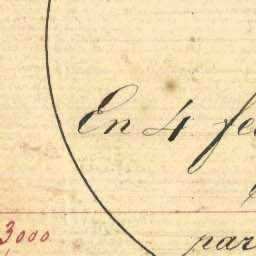 En 4 fe
3,000
par